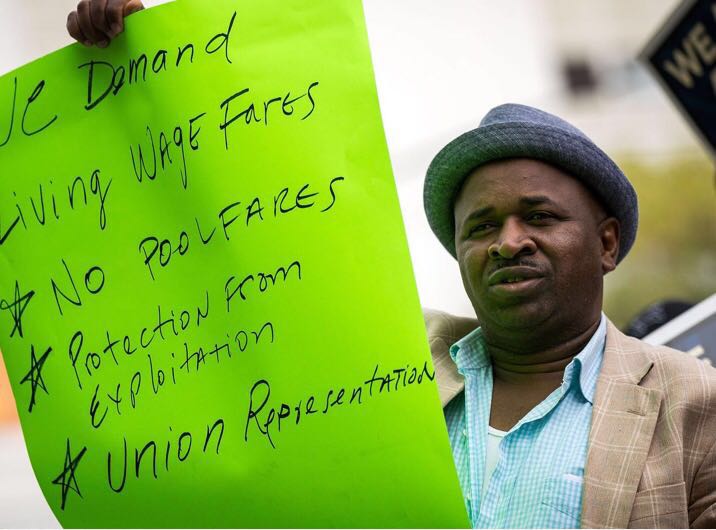 We Demand
Living WAGE FAres
* NO POOLFARES
* Protection From
ExploitATion
* Union RepresentATION
WE